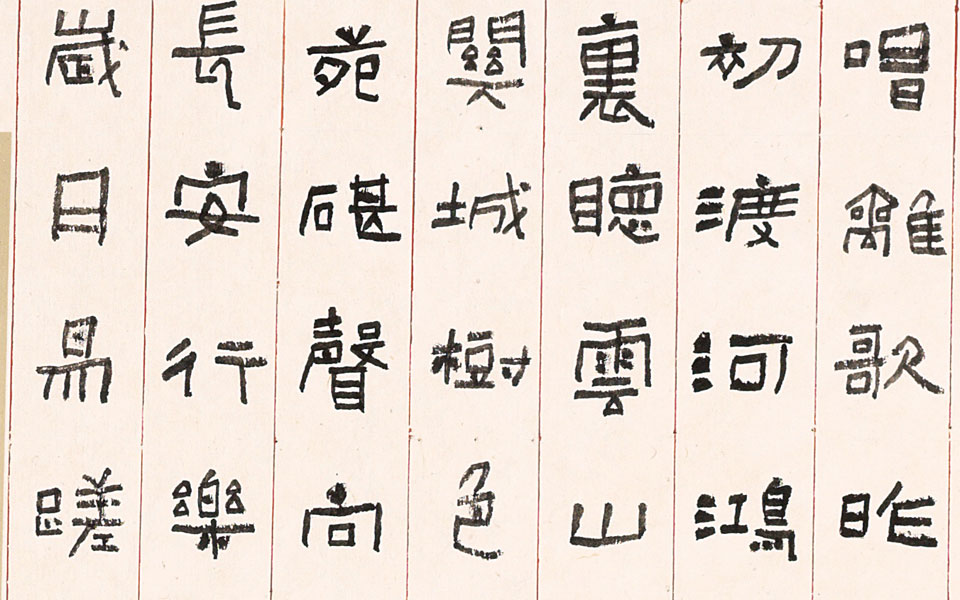 唱離歌昨
初渡河鴻
裏聽雲山
關城樹色
苑碪聲向
長安行樂
歲日易蹉